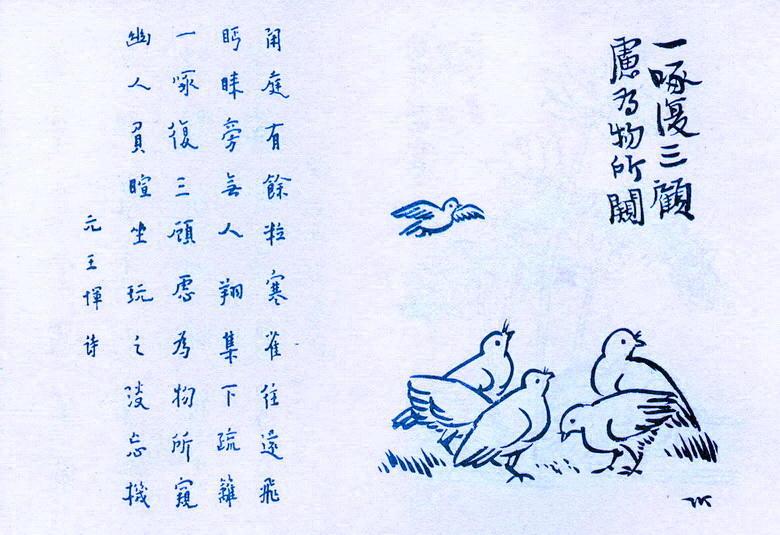 一啄復三顧
慮为物所闚
閑庭有餘粒寒雀往還飛
眄睞旁無人翔集下疏籬
一啄復三顧慮为物所窺
幽人負暄坐玩之淡忘機
元王惲诗
TK